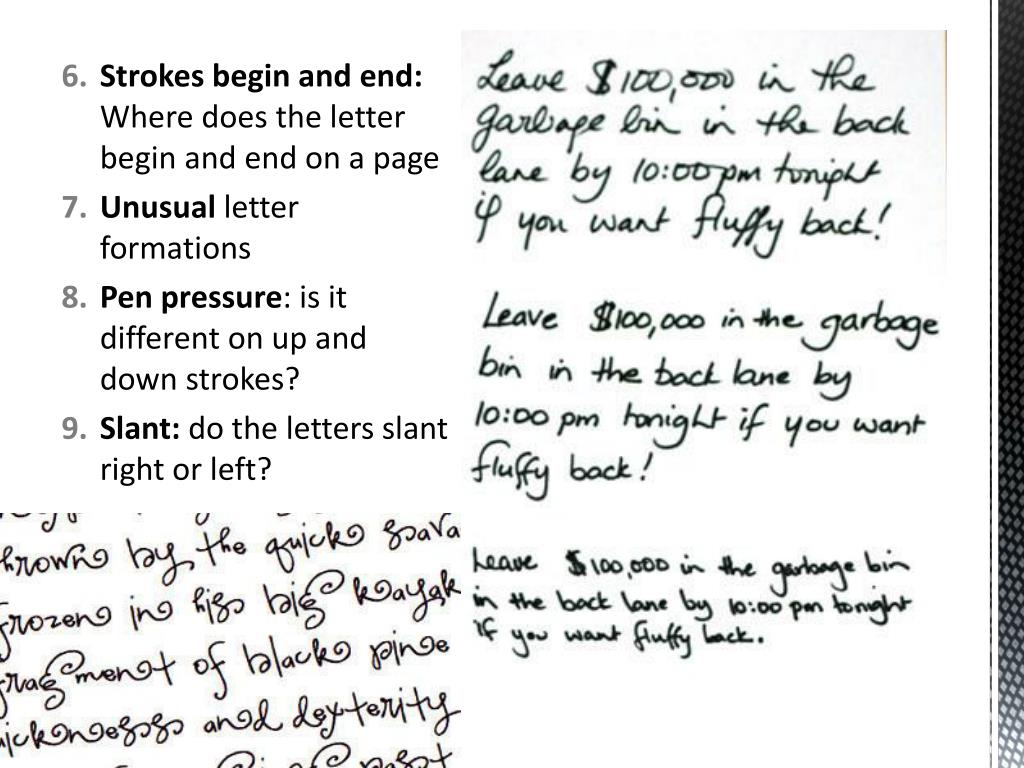 6. Strokes begin and end:
Where does the letter
begin and end on a page
7. Unusual letter
formations
8. Pen pressure: is it
different on up and
down strokes?
9. Slant: do the letters slant
right or left?
Leave $100,000 in the
garbage bin in the back
lane by 10:00pm tonight
if you want fluffy back!
Leave $100,000 in the garbage
bin in the back lane by
10:00 pm tonight if you want
fluffy back!
Leave $100,000 in the garbage bin
in the back lane by 10:00 pm tonight
if you want fluffy back.
hrown by the quick sava
frozen in his big kayak
fragment of black pine
ickness and dexterity
past